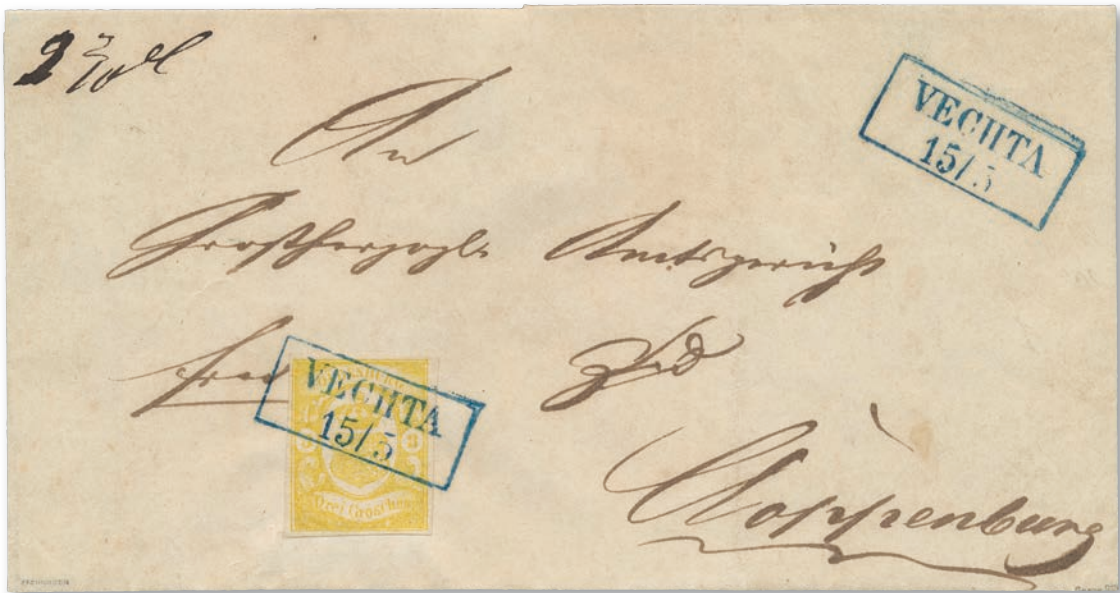 VECHTA
15/5
An
Großherzogl. Amtsgericht
frei
VECHTA
15/5
3
3
Drei Groschen
Cloppenburg